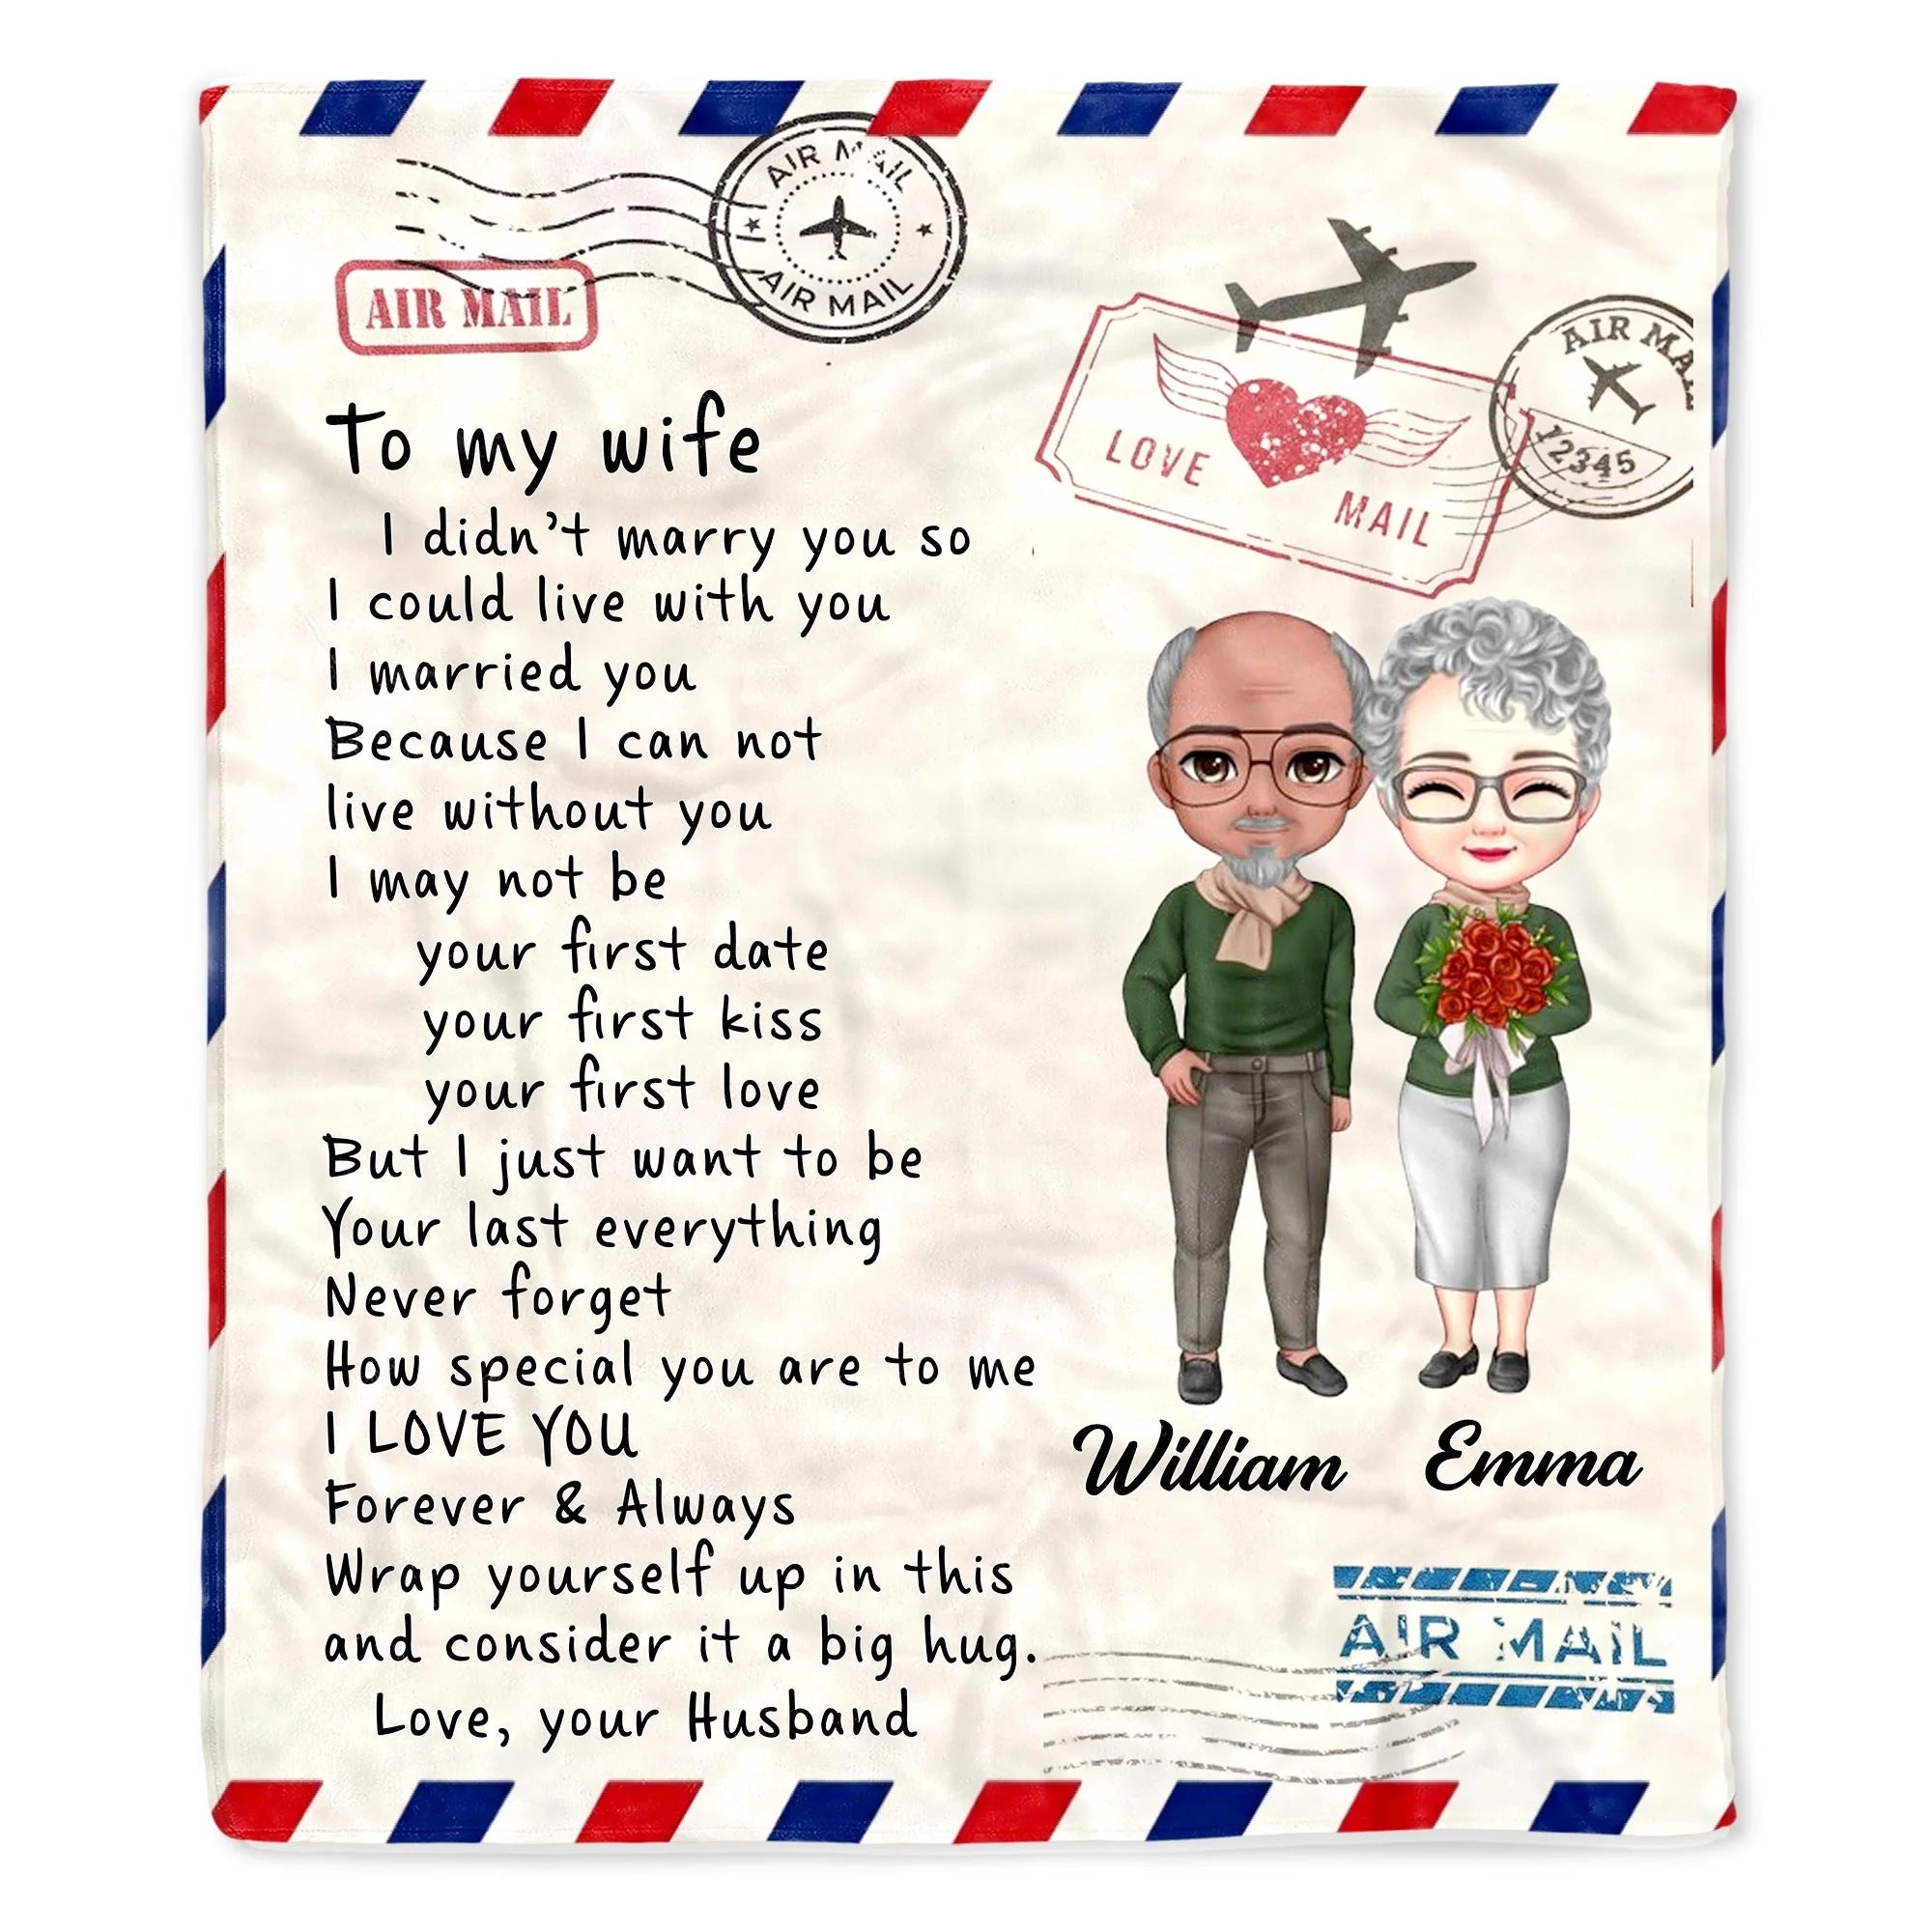 AIR MAIL
AIR MAIL
AIR MAIL
LOVE
MAIL
AIR MAIL
12345
To my wife
I didn't marry you so
I could live with you
I married you
Because I can not
live without you
I may not be
your first date
your first kiss
your first love
But I just want to be
Your last everything
Never forget
How special you are to me
I LOVE YOU
Forever & Always
Wrap yourself up in this
and consider it a big hug.
Love, your Husband
William
Emma
AIR MAIL